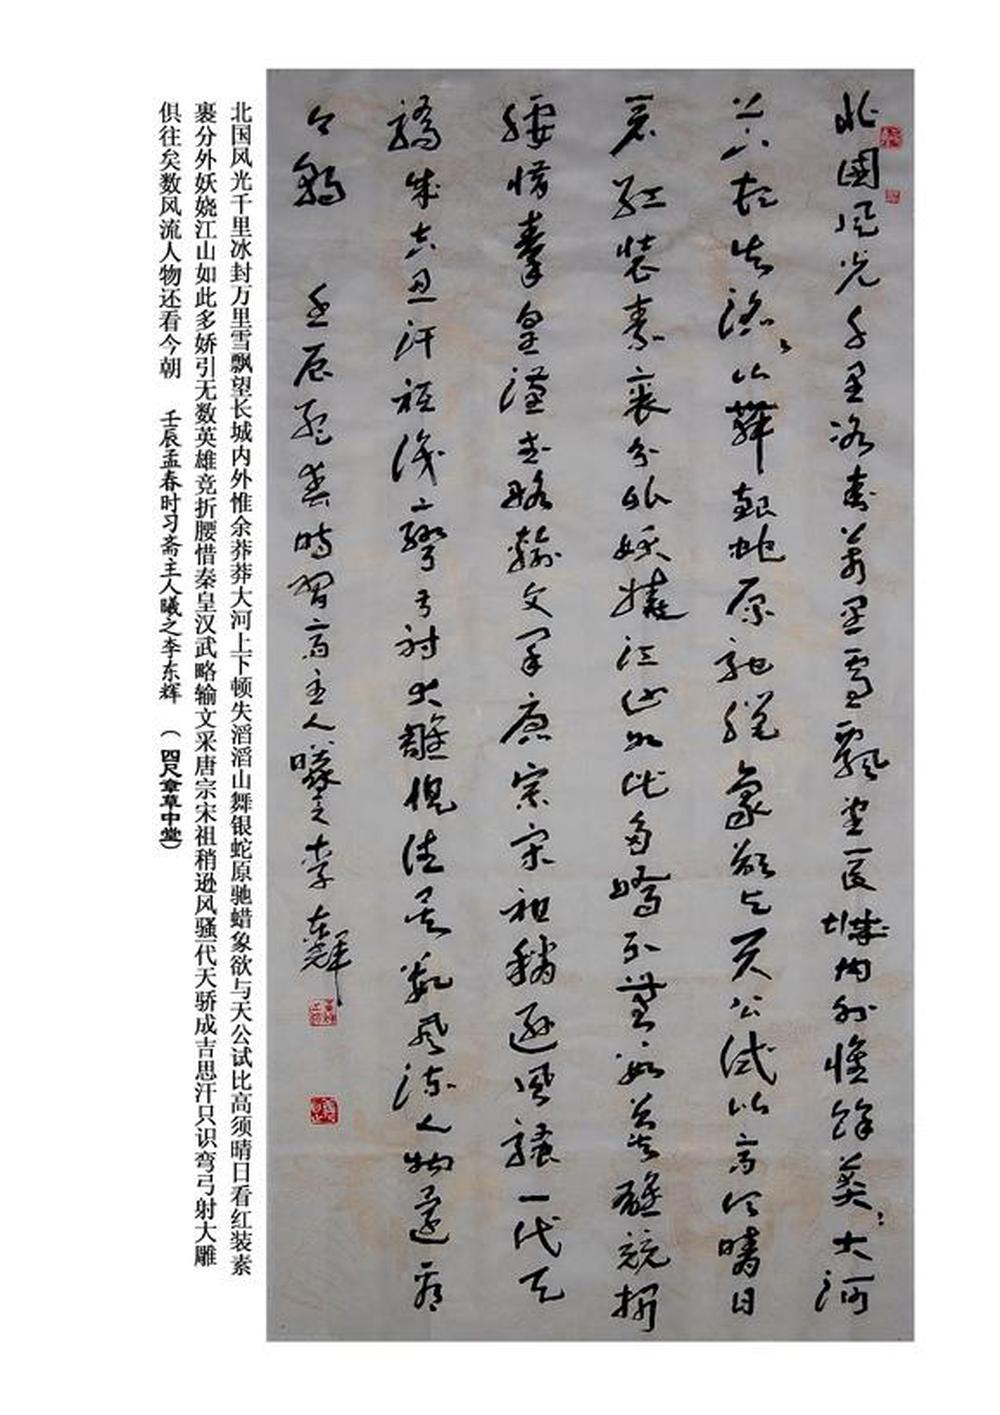 北國風光千里冰封萬里雪飄望長城內外惟餘莽〻大河
上下頓失滔〻山舞銀蛇原馳蠟象欲與天公試比高須晴日
看紅裝素裹分外妖嬈江山如此多嬌引無數英雄競折
腰惜秦皇漢武略輸文采唐宗宋祖稍遜風騷一代天
驕成吉思汗祇識彎弓射大雕俱往矣數風流人物還看
今朝 壬辰孟春時習斎主人曦之李东輝
北国风光千里冰封万里雪飘望长城内外惟余莽莽大河上下顿失滔滔山舞银蛇原驰蜡象欲与天公试比高须晴日看红装素
裹分外妖娆江山如此多娇引无数英雄竞折腰惜秦皇汉武略输文采唐宗宋祖稍逊风骚一代天骄成吉思汗只识弯弓射大雕
俱往矣数风流人物还看今朝 壬辰孟春时习斋主人曦之李东辉 (四尺章草中堂)